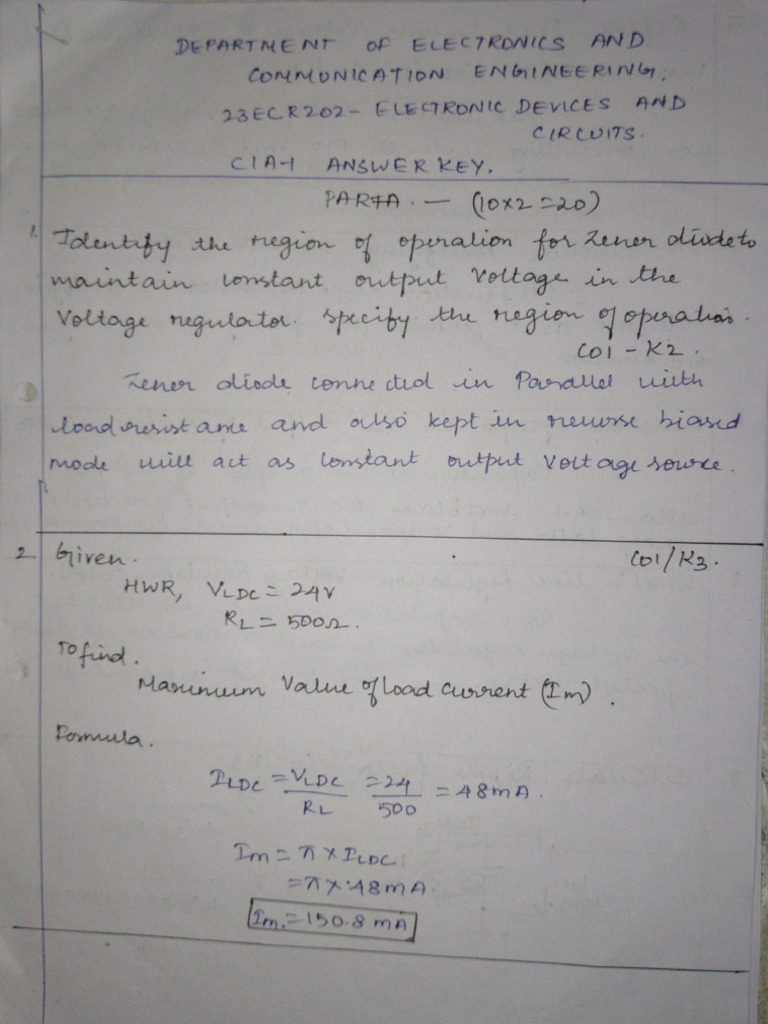 DEPARTMENT OF ELECTRONICS AND
COMMUNICATION ENGINEERING.
23ECR202- ELECTRONIC DEVICES AND
CIRCUITS.
CIA-1 ANSWER KEY.
PART A. — (10x2=20)
1. Identify the region of operation for Zener diode to
maintain constant output voltage in the
Voltage regulator. Specify the region of operation.
CO1 - K2.
Zener diode connected in Parallel with
load resistance and also kept in reverse biased
mode will act as constant output voltage source.
2 Given. CO1/K3.
HWR, VLDC = 24V
RL = 500Ω.
To find.
Maximum Value of load current (Im).
Formula.
ILDC = VLDC/RL = 24/500 = 48mA.
Im = π X ILDC
= π X 48mA.
Im. = 150.8 mA